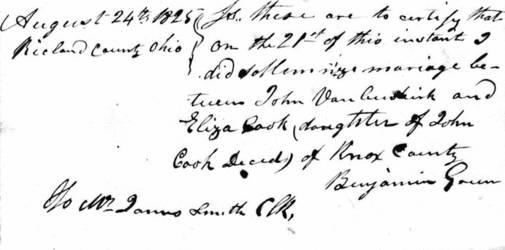 August 24th. 1825 } Js. these are to certify that
Ricland County Ohio } on the 21st of this instant I
did sollemnize marriage be-
tween John Vanbuskirk and
Eliza Cook (daughter of John
Cook Decesd) of Knox County
Benjamin Green
To Mr. James Smith Clk,